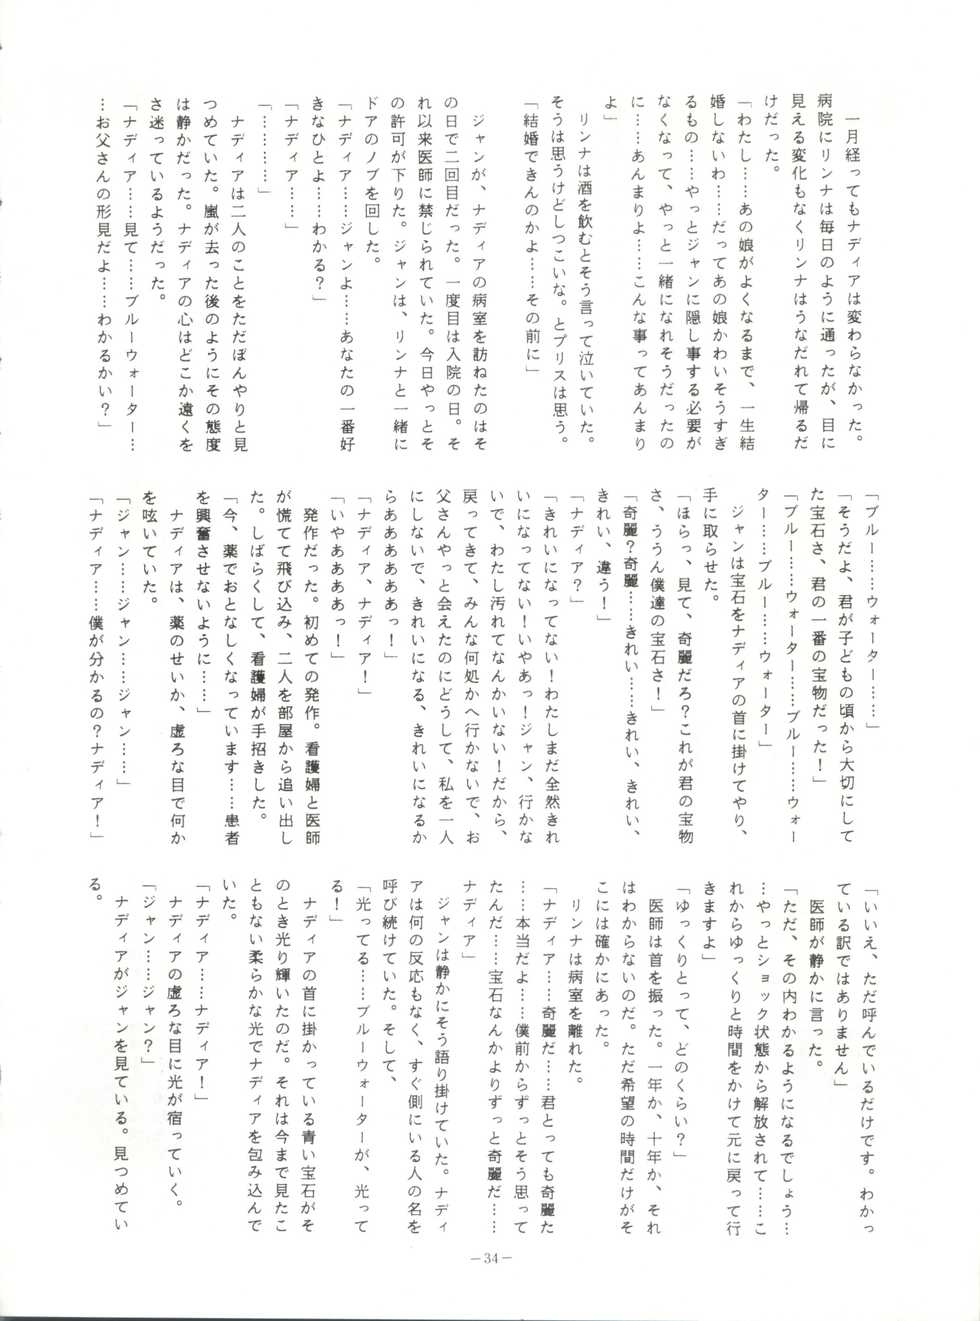 一月経ってもナディアは変わらなかった。
病院にリンナは毎日のように通ったが、目に
見える変化もなくリンナはうなだれて帰るだ
けだった。
「わたし……あの娘がよくなるまで、一生結
婚しないわ……だってあの娘かわいそうすぎ
るもの…やっとジャンに隠し事する必要が
なくなって、やっと一緒になれそうだったの
に……あんまりよ……こんな事ってあんまり
よ」
リンナは酒を飲むとそう言って泣いていた。
そうは思うけどしつこいな。とプリスは思う。
「結婚できんのかよ……その前に」
ジャンが、ナディアの病室を訪ねたのはそ
の日で二回目だった。一度目は入院の日。そ
れ以来医師に禁じられていた。今日やっとそ
の許可が下りた。ジャンは、リンナと一緒に
ドアのノブを回した。
「ナディア……ジャンよ……あなたの一番好
きなひとよ……わかる？」
「ナディア……」
「…………」
ナディアは二人のことをただぼんやりと見
つめていた。嵐が去った後のようにその態度
は静かだった。ナディアの心はどこか遠くを
さ迷っているようだった。
「ナディア……見て……ブルーウォーター…
…お父さんの形見だよ……わかるかい？」
「ブルー……ウォーター……」
「そうだよ、君が子どもの頃から大切にして
た宝石さ、君の一番の宝物だった！」
「ブルー……ウォーター……ブルー……ウォー
ター……ブルー……ウォーター」
ジャンは宝石をナディアの首に掛けてやり、
手に取らせた。
「ほらっ、見て、奇麗だろ？これが君の宝物
さ、ううん僕達の宝石さ！」
「奇麗？奇麗……きれい……きれい、きれい、
きれい、違う！」
「ナディア？」
「きれいになってない！わたしまだ全然きれ
いになってない！いやあっ！ジャン、行かな
いで、わたし汚れてなんかいない！だから、
戻ってきて、みんな何処かへ行かないで、お
父さんやっと会えたのにどうして、私を一人
にしないで、きれいになる、きれいになるか
らあああああっ！」
「ナディア、ナディア！」
「いやああああっ！」
発作だった。初めての発作。看護婦と医師
が慌てて飛び込み、二人を部屋から追い出し
た。しばらくして、看護婦が手招きした。
「今、薬でおとなしくなっています……患者
を興奮させないように……」
ナディアは、薬のせいか、虚ろな目で何か
を呟いていた。
「ジャン……ジャン……ジャン……」
「ナディア……僕が分かるの？ナディア！」
「いいえ、ただ呼んでいるだけです。わかっ
ている訳ではありません」
医師が静かに言った。
「ただ、その内わかるようになるでしょう…
…やっとショック状態から解放されて……こ
れからゆっくりと時間をかけて元に戻って行
きますよ」
「ゆっくりとって、どのくらい？」
医師は首を振った。一年か、十年か、それ
はわからないのだ。ただ希望の時間だけがそ
こには確かにあった。
リンナは病室を離れた。
「ナディア……奇麗だ……君とっても奇麗だ
……本当だよ……僕前からずっとそう思って
たんだ……宝石なんかよりずっと奇麗だ……
ナディア」
ジャンは静かにそう語り掛けていた。ナディ
アは何の反応もなく、すぐ側にいる人の名を
呼び続けていた。そして、
「光ってる……ブルーウォーターが、光って
る！」
ナディアの首に掛かっている青い宝石がそ
のとき光り輝いたのだ。それは今まで見たこ
ともない柔らかな光でナディアを包み込んで
いた。
「ナディア……ナディア！」
ナディアの虚ろな目に光が宿っていく。
「ジャン……ジャン？」
ナディアがジャンを見ている。見つめてい
る。
－34－